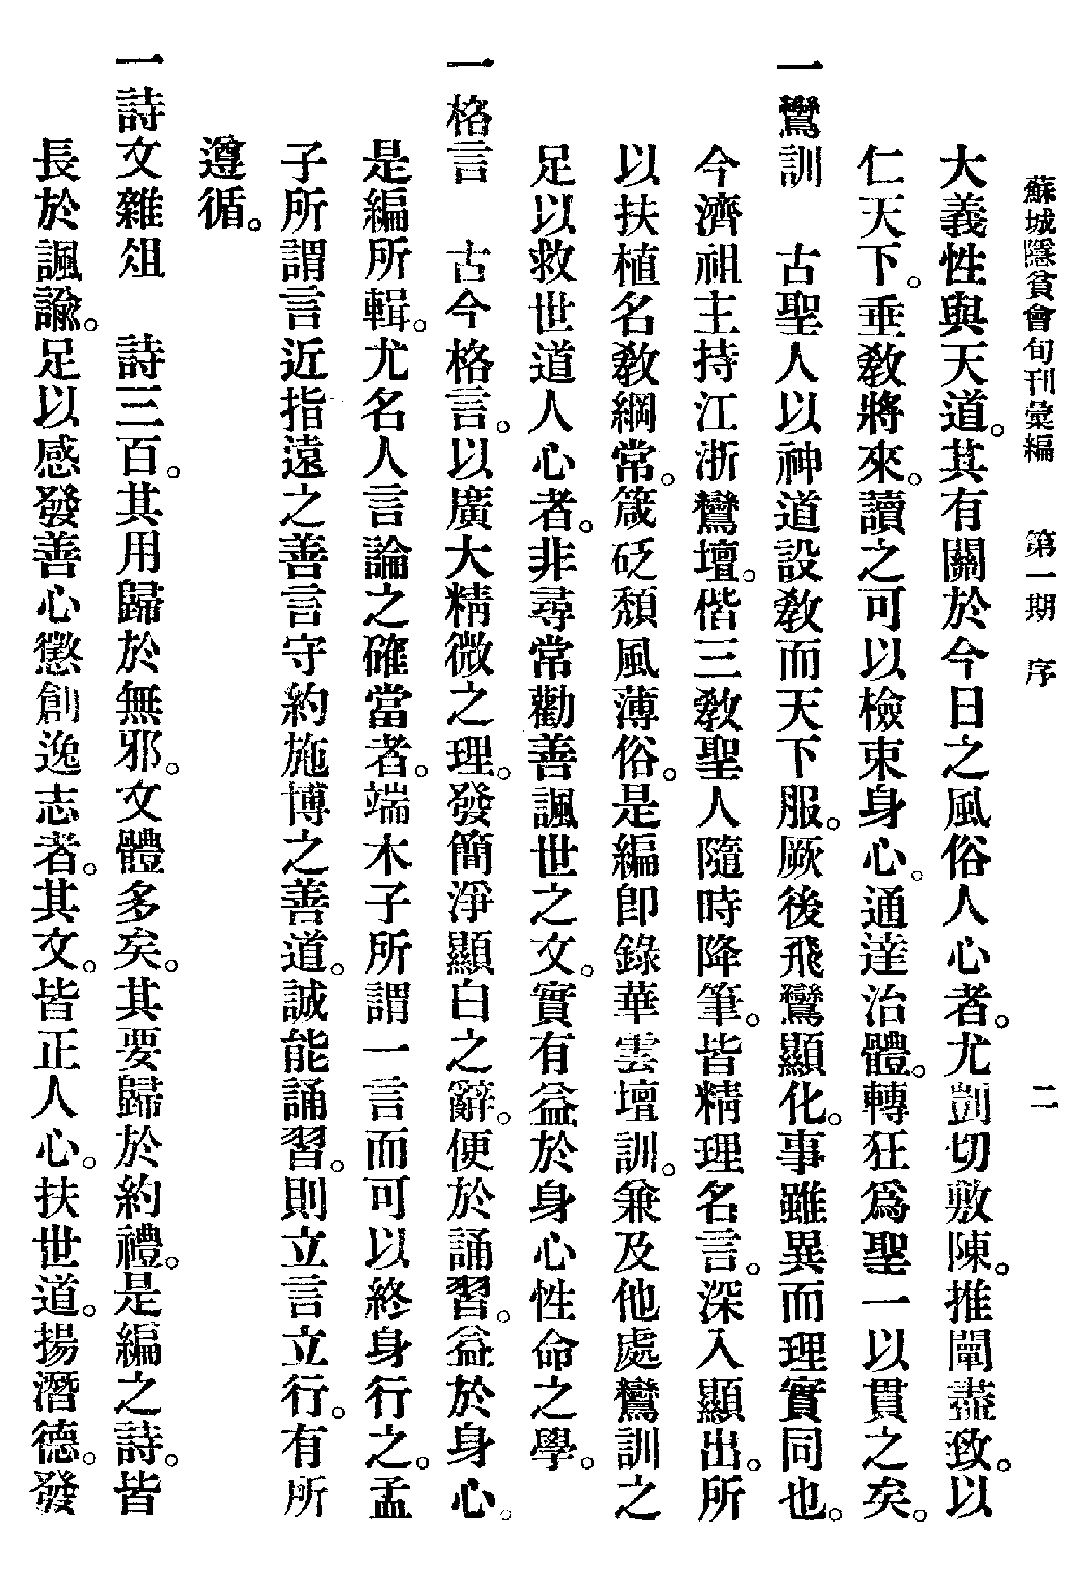 蘇城隱貧會旬刊彙編　第一期　序　二
大義性與天道。其有關於今日之風俗人心者。尤剴切敷陳。推闡盡致。以
仁天下。垂敎將來。讀之可以檢束身心。通達治體。轉狂爲聖一以貫之矣。
一鸞訓　古聖人以神道設敎而天下服。厥後飛鸞顯化。事雖異而理實同也。
今濟祖主持江浙鸞壇。偕三敎聖人隨時降筆。皆精理名言。深入顯出。所
以扶植名敎綱常。箴砭頹風薄俗。是編卽錄華雲壇訓。兼及他處鸞訓之
足以救世道人心者。非尋常勸善諷世之文。實有益於身心性命之學。
一格言　古今格言。以廣大精微之理。發簡淨顯白之辭。便於誦習。益於身心。
是編所輯。尤名人言論之確當者。端木子所謂一言而可以終身行之。孟
子所謂言近指遠之善言守約施博之善道。誠能誦習。則立言立行。有所
遵循。
一詩文雜俎　詩三百。其用歸於無邪。文體多矣。其要歸於約禮。是編之詩。皆
長於諷諭。足以感發善心懲創逸志者。其文。皆正人心。扶世道。揚潛德。發